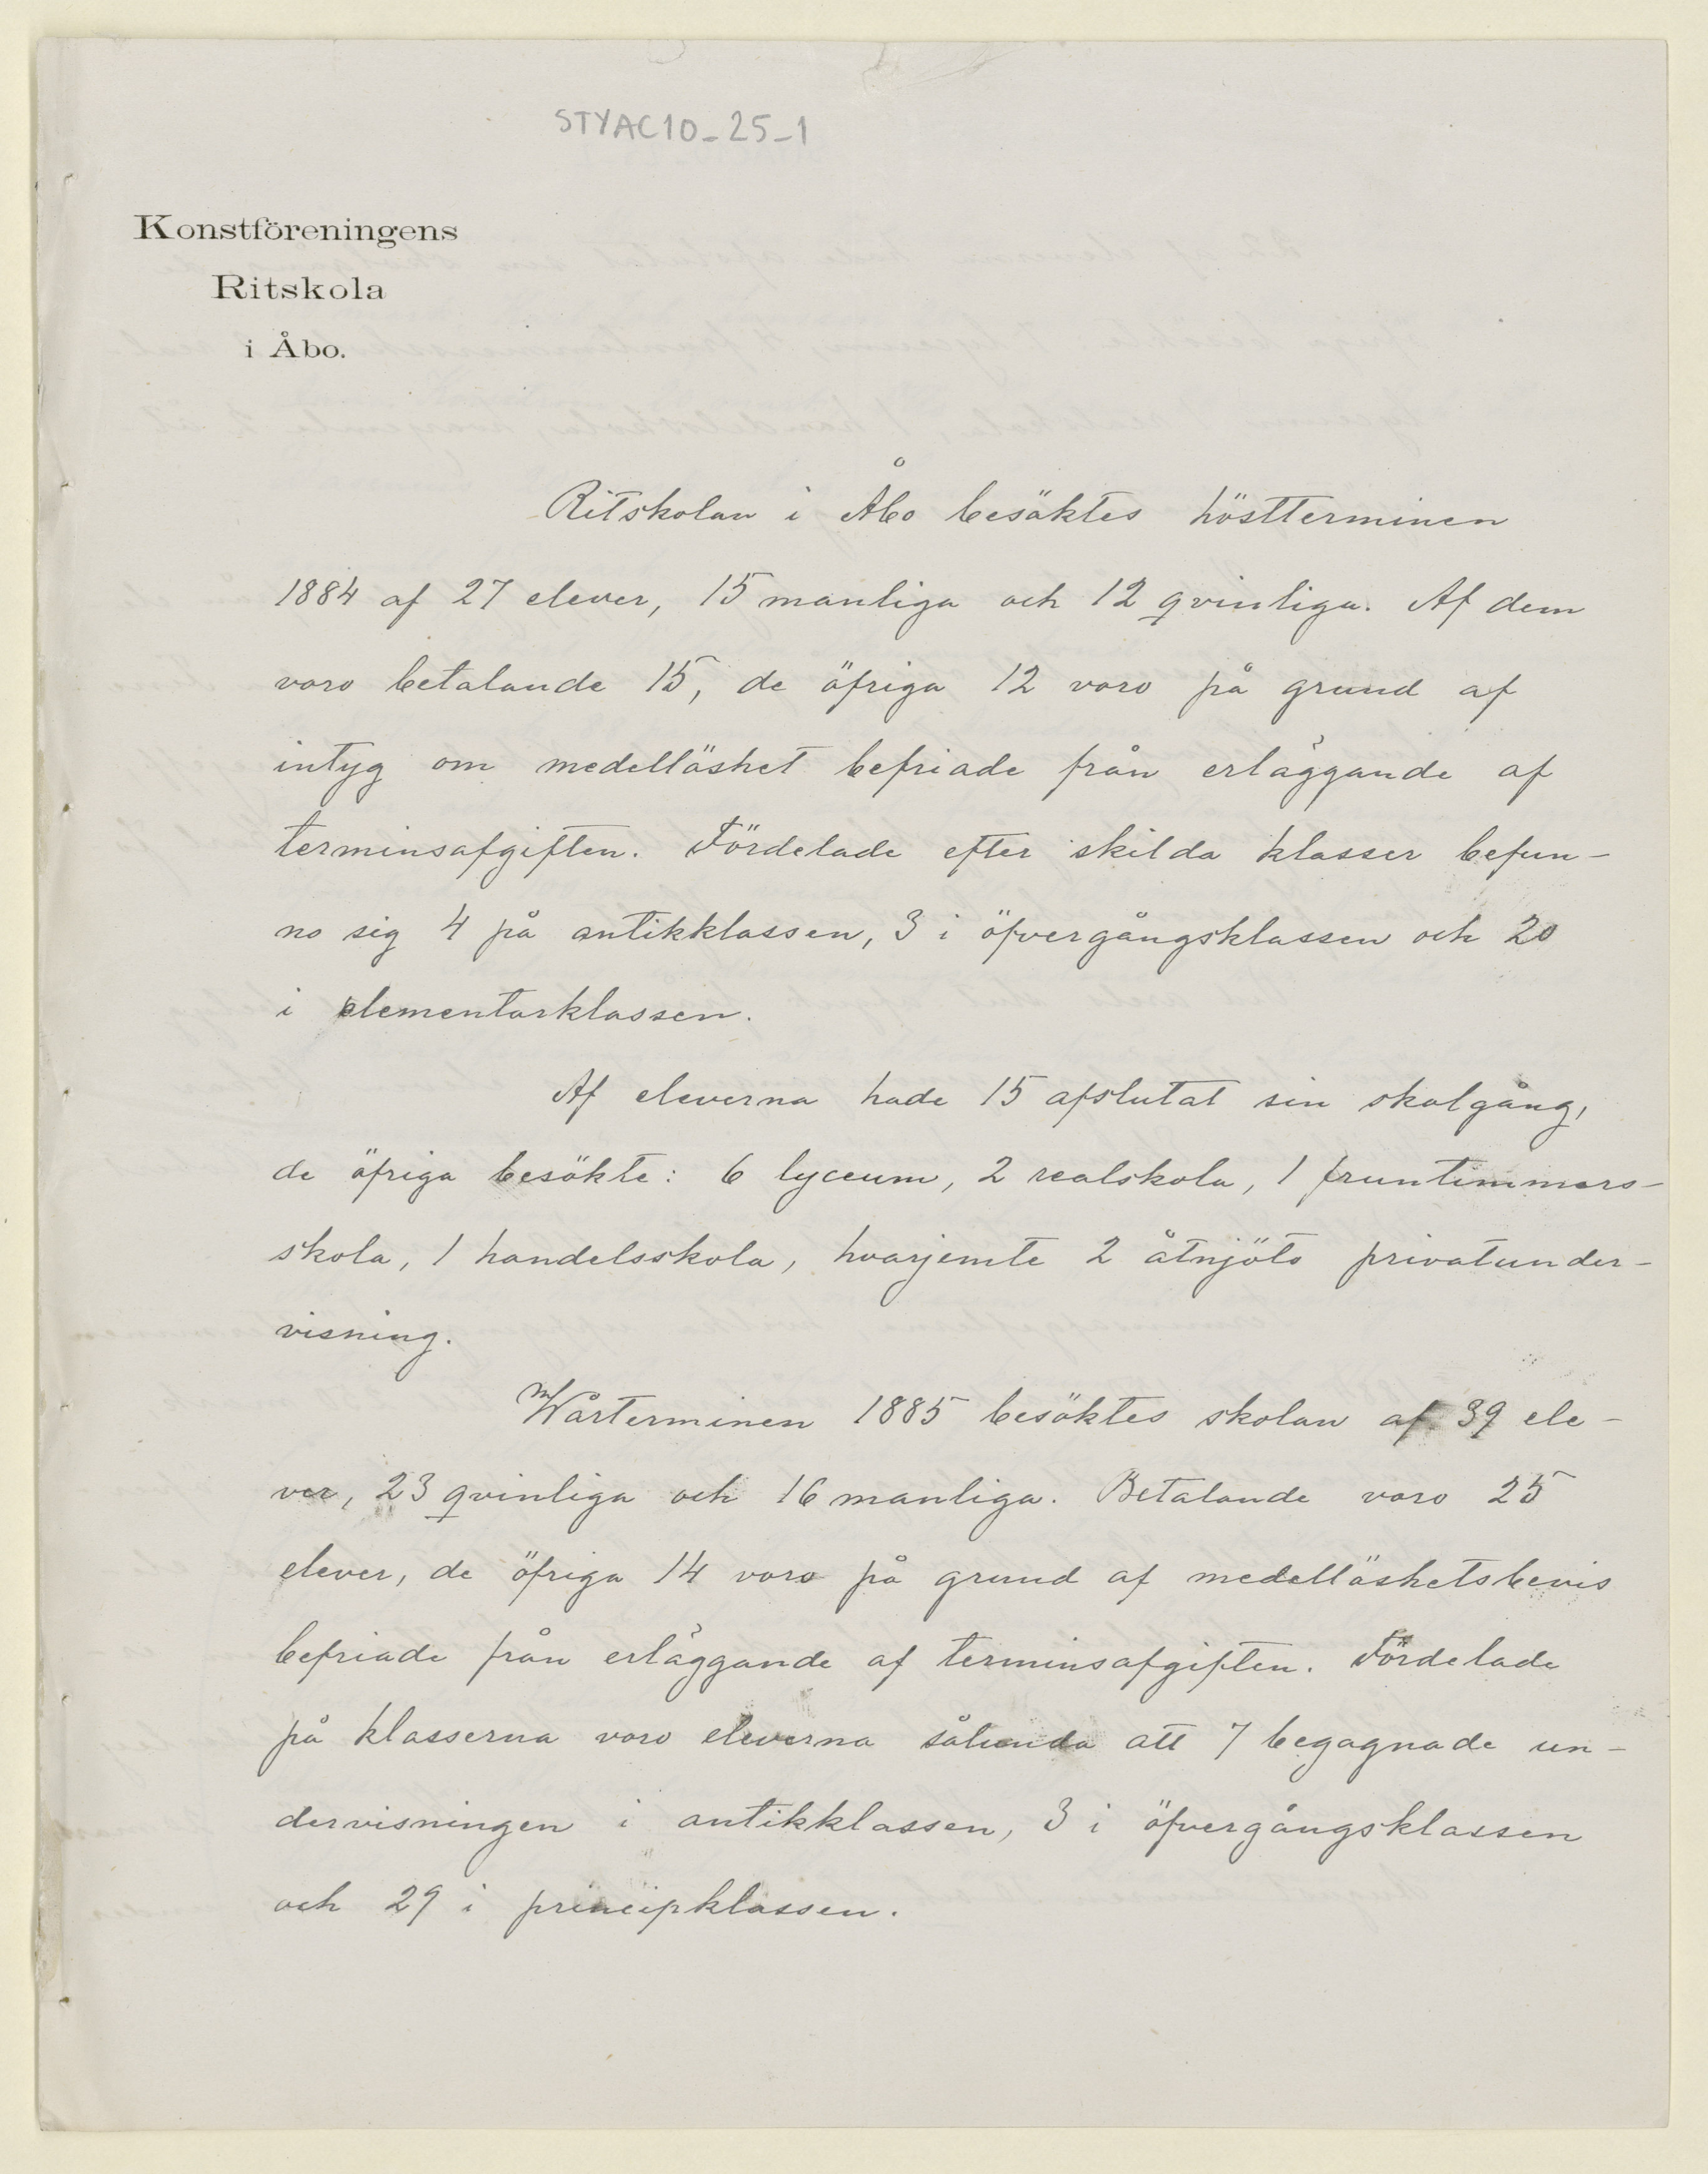 STYAC10_25_1
Konstföreningens
Ritskola
i Åbo.
Ritskolan i Åbo besöktes höstterminen
1884 af 27 elever, 15 manliga och 12 qvinliga. Af dem
voro betalande 15, de öfriga 12 voro på grund af
intyg om medellöshet befriade från erläggande af
terminsafgiften. Fördelade efter skilda klasser befun-
no sig 4 på antikklassen, 3 i öfvergångsklassen och 20
i elementarklassen.
Af eleverna hade 15 afslutat sin skolgång,
de öfriga besökte: 6 lyceum, 2 realskola, 1 fruntimmers-
skola, 1 handelsskola, hvarjemte 2 åtnjöto privatunder-
visning.
Wårterminen 1885 besöktes skolan af 39 ele-
ver, 23 qvinliga och 16 manliga. Betalande voro 25
elever, de öfriga 14 voro på grund af medellöshetsbevis
befriade från erläggande af terminsafgiften. Fördelade
på klasserna voro eleverna sålunda att 7 begagnade un-
dervisningen i antikklassen, 3 i öfvergångsklassen
och 29 i principklassen.